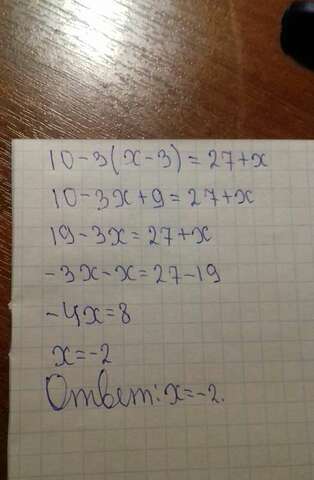 10-3(x-3)=27+x
10-3x+9=27+x
19-3x=27+x
-3x-x=27-19
-4x=8
x=-2
Ответ: x=-2.